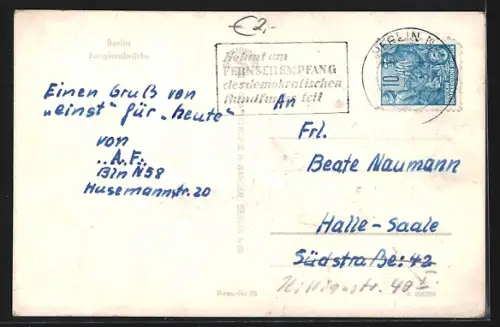 €2,-
Berlin
Jungfernbrücke
Nehmt am
FERNSEHEMPFANG
des demokratischen
Rundfunks teil
BERLIN
10
Einen Gruß von
"einst" für "heute"
von
"A.F."
Bln N58
Husemannstr. 20
An
Frl.
Beate Naumann
Halle-Saale
Südstraße: 42
40